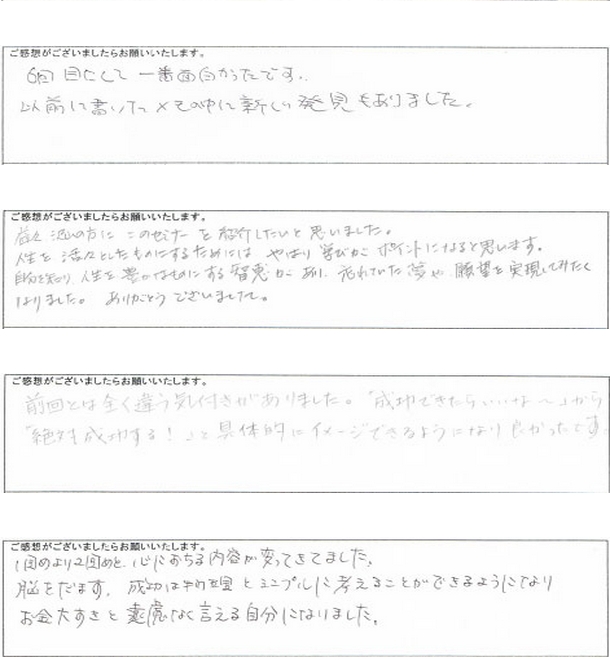 ご感想がございましたらお願いいたします。
6回目にして一番面白かったです。
以前に書いたメモの中に新しい発見もありました。
ご感想がございましたらお願いいたします。
益々 沢山の方に このセミナーを紹介したいと思いました。
人生を 活々としたものにするためには やはり 学びが ポイントになると思います。
自分を知り 人生を 豊かなものにする智恵が あり、忘れていた 夢や 願望を実現してみたく
なりました。 ありがとう ございました。
ご感想がございましたらお願いいたします。
前回とは全く違う気付きがありました。「成功できたらいいな〜」から
「絶対成功する!」と具体的にイメージできるようになり良かったです。
ご感想がございましたらお願いいたします。
1回めより2回めと、心におちる内容が変ってきてました。
脳をだます、成功は とシンプルに考えることができるようになり
お金大すきと遠慮なく言える自分になりました。